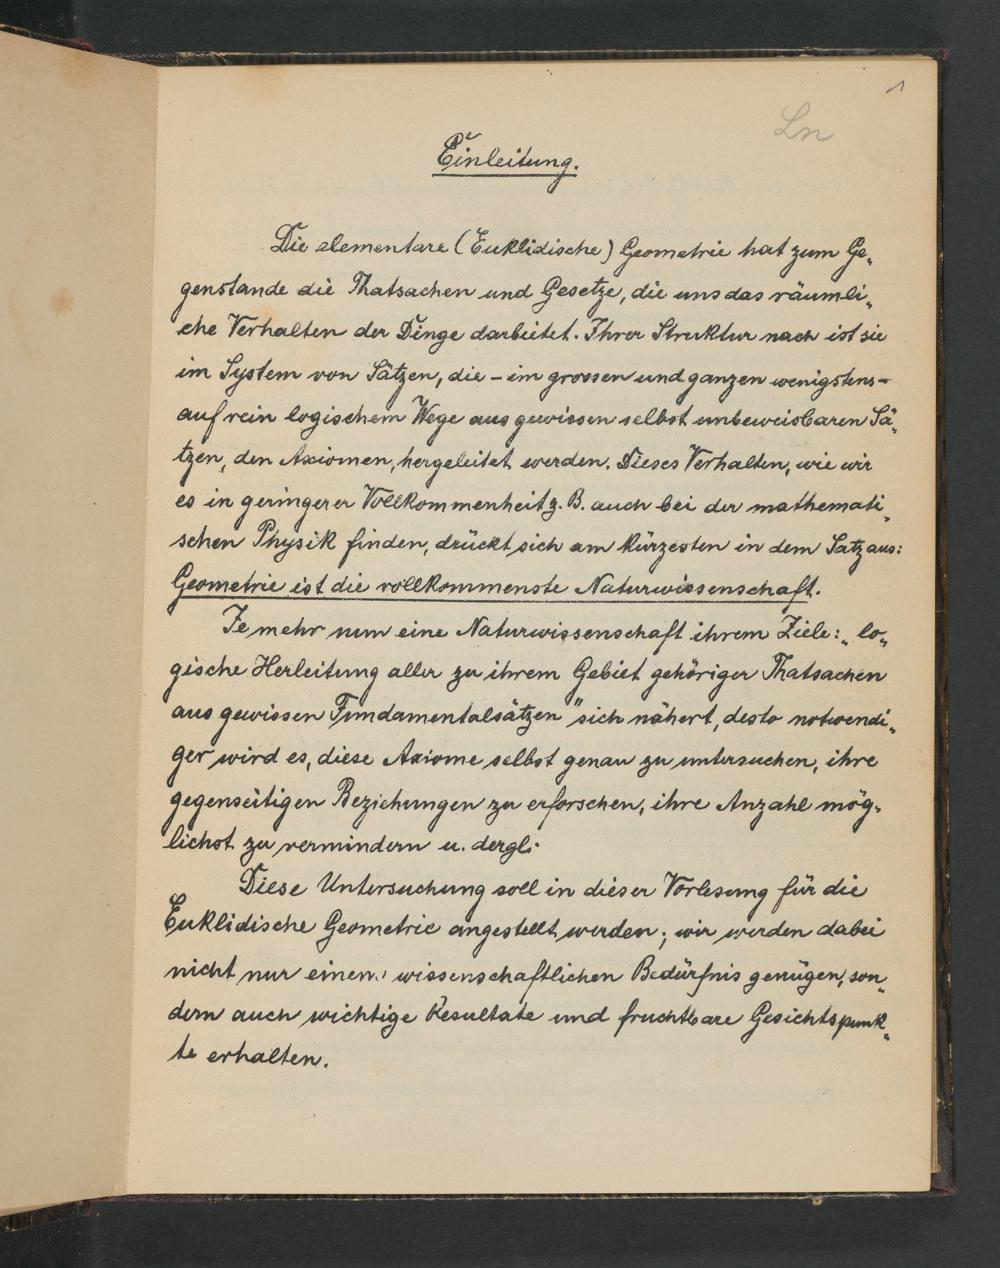 1
Ln
Einleitung.
Die elementare (Euklidische) Geometrie hat zum Ge„
genstande die Thatsachen und Gesetze, die uns das räumli„
che Verhalten der Dinge darbietet. Ihrer Struktur nach ist sie
im System von Sätzen, die – im grossen und ganzen wenigstens –
auf rein logischem Wege aus gewissen selbst unbeweisbaren Sä„
tzen, den Axiomen, hergeleitet werden. Dieses Verhalten, wie wir
es in geringerer Vollkommenheit z. B. auch bei der mathemati„
schen Physik finden, drückt sich am kürzesten in dem Satz aus:
Geometrie ist die vollkommenste Naturwissenschaft.
Je mehr nun eine Naturwissenschaft ihrem Ziele: „lo„
gische Herleitung aller zu ihrem Gebiet gehöriger Thatsachen
aus gewissen Fundamentalsätzen" sich nähert, desto notwendi„
ger wird es, diese Axiome selbst genau zu untersuchen, ihre
gegenseitigen Beziehungen zu erforschen, ihre Anzahl mög„
lichst zu vermindern u. dergl.
Diese Untersuchung soll in dieser Vorlesung für die
Euklidische Geometrie angestellt werden; wir werden dabei
nicht nur einem wissenschaftlichen Bedürfnis genügen, son„
dern auch wichtige Resultate und fruchtbare Gesichtspunk„
te erhalten.